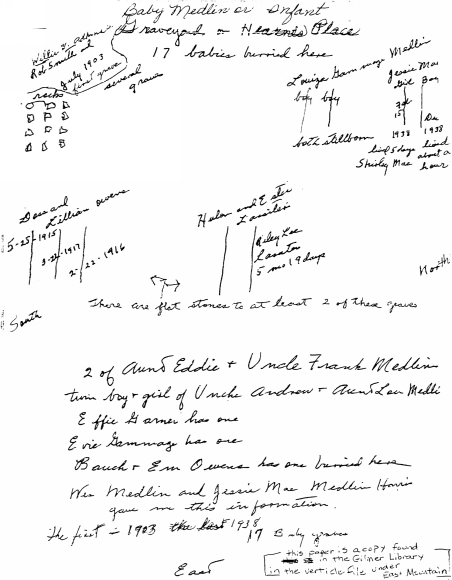 Baby Medlin or Infant
Graveyard on Hearne Place
17 babies burried here
Willie & 
Rob Smith
July 1903
first grave
several
graves
rocks
Louize Gammage Medlin
boy boy
both stillborn
Jessie Mae
Girl Boy
Feb
15
1938
Dec
1938
lived 5 days
Shirley Mae
lived
about a
hour
Dave and
Lillian Owens
5-25-1915
3-22-1917
2-22-1916
Hulon and Ester
Lassiter
Riley Lee
Lassiter
5 mo 19 days
North
There are flat stones to at least 2 of these graves
South
2 of Aunt Eddie + Uncle Frank Medlin
twin boy + girl of Uncle Andrew + Aunt Lou Medli
Effie Garner has one
Evie Gammage has one
Bauch + Em Owens has one burried here
Wes Medlin and Jessie Mae Medlin Harris
gave me this information.
The first - 1903 the last 1938
17 Baby graves
East
this paper is a copy found
in the Gilmer Library
in the verticle file under
East Mountain